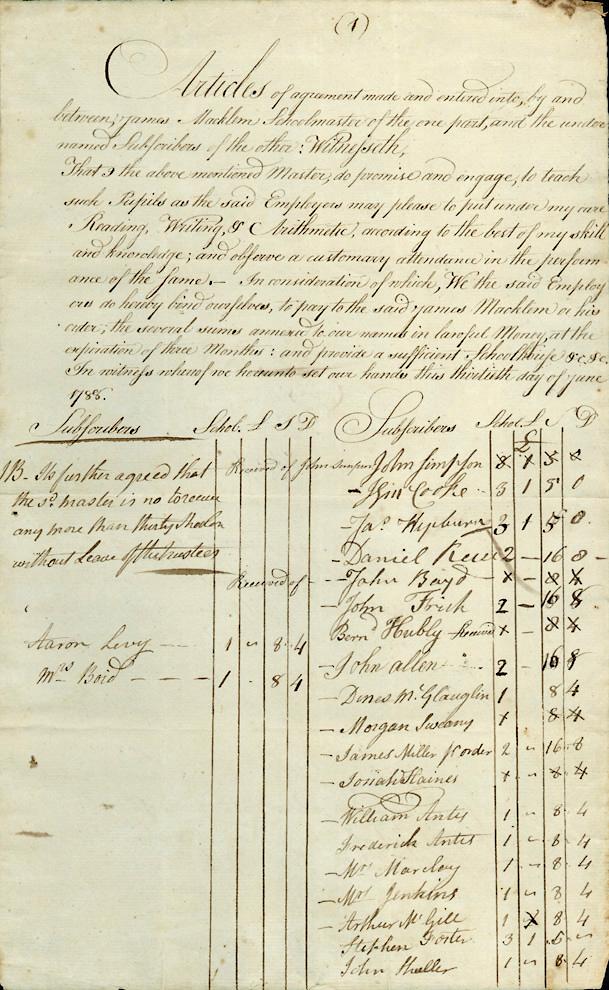 (1)
Articles of agreement made and entered into, by and
between, James Macklem Schoolmaster of the one part, and the under
named Subscribers of the other: Witnesseth,
That I the above mentioned Master, do promise and engage, to teach
such Pupils as the said Employers may please to put under my care
Reading, Writing, & Arithmetic, according to the best of my skill
and knowledge; and observe a customary attendance in the perform
ance of the same.— In consideration of which, We the said Employ
ers do hereby bind ourselves, to pay to the said James Macklem or his
order; the several sums annexed to our names in lawful Money, at the
expiration of three Months: and provide a sufficient Schoolhouse &c &c.
In witness whereof we hereunto set our hands this thirtieth day of June
1788.
Subscribers Schol. £ S D
NB— Its further agreed that
the sd. master is no to receive
any more than thirty
without Leave of the trustees
Received of
Aaron Levy — 1 " 8 4
Mrs Boid — — — 1 " 8 4
Subscribers Schol. £ S D
Received of John Simpson John Simpson 8 1 5
— Cooke 3 1 5 0
— Jas. Hepburn 3 1 5 0
— Daniel 2 — 16 8
— John Boyd x — 8 x
— John Frish 2 — 16 8
Bernd Hubly Received x — 8 4
— John allen 2 — 16 8
— Denes McGlauglin 1 8 4
— Morgan Sweany x 8 4
— James Miller pr order 2 " 16 8
— Josiah Haines x " 8 4
— William Antes 1 " 8 4
Frederick Antes 1 " 8 4
— Mr Marclay 1 " 8 4
— Mrs Jenkins 1 " 8 4
— Arthur McGill 1 x 8 4
Stephen Foster 3 1 5 "
John Sheller 1 " 8 4